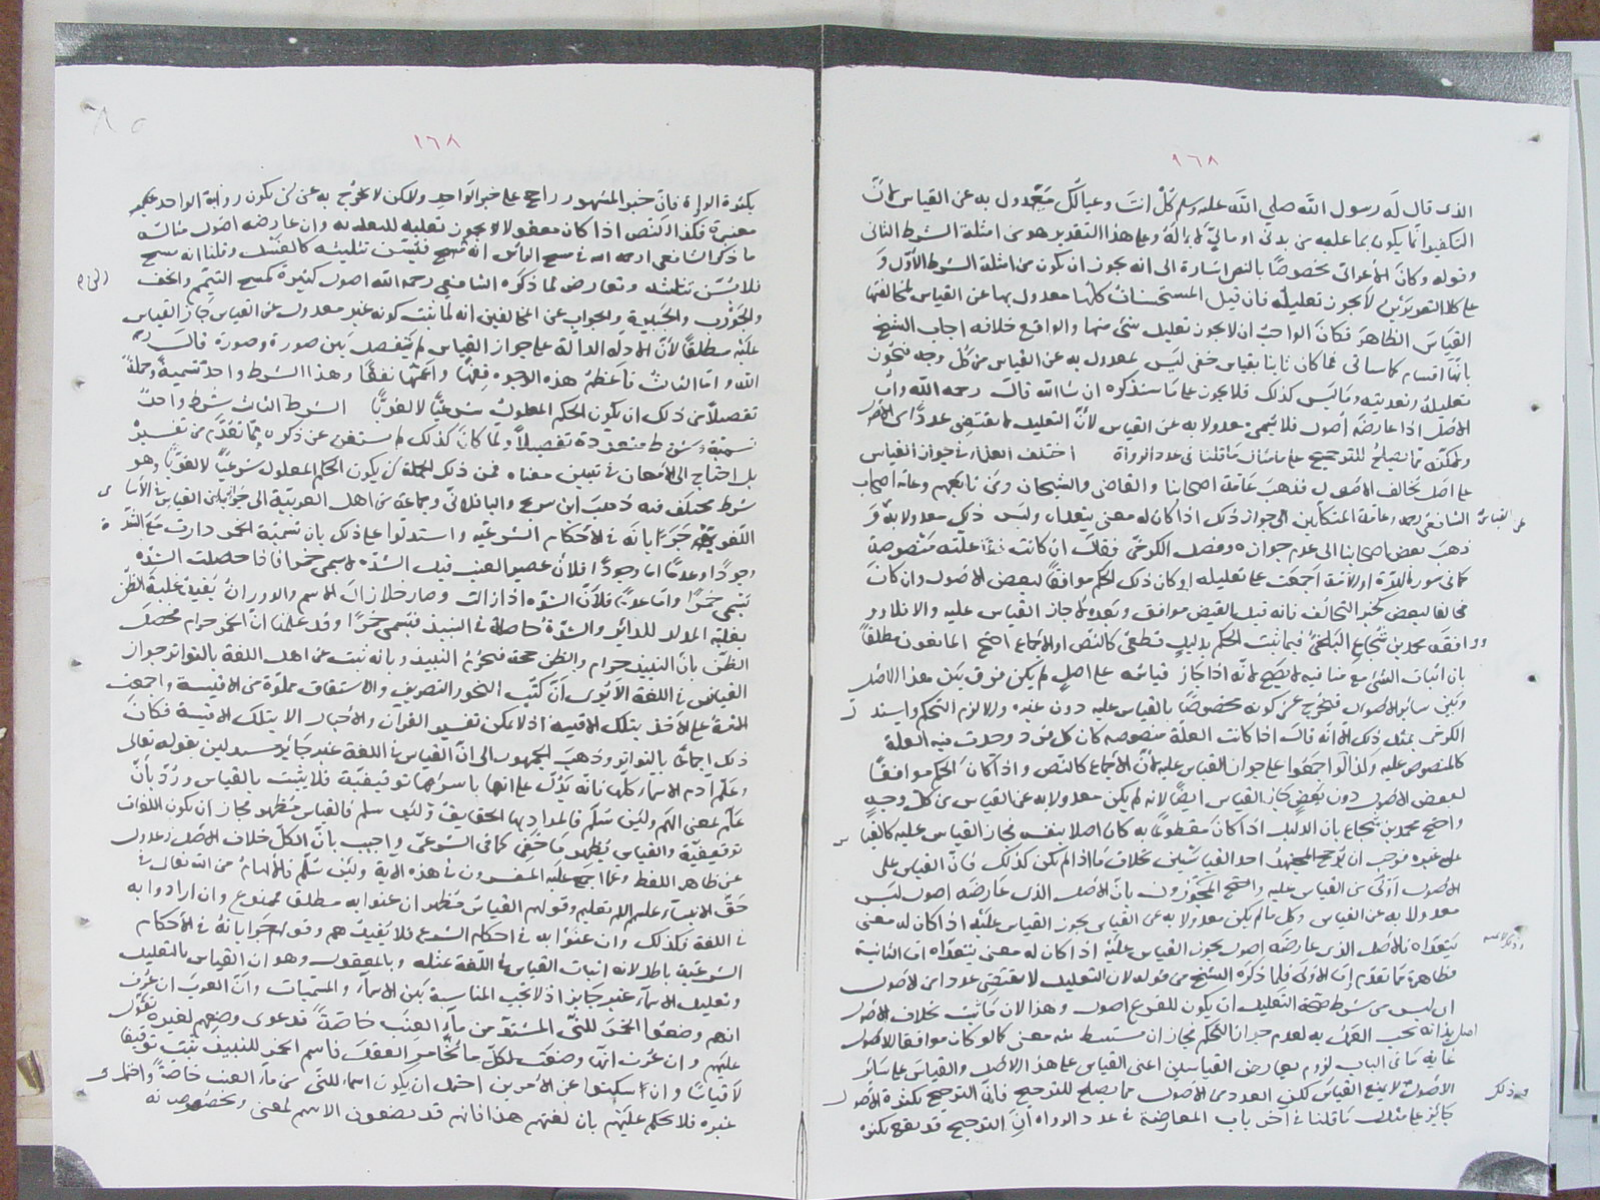 ١٦٨
الذى قال له رسول الله صلى الله عليه وسلم كل انت وعيالك معدول به عن القياس لان
التكفير انما يكون بما عليه من بدنى او مالى لا بماله وعلى هذا التقدير هو من امثلة الشرط الثانى
وقوله وكان الاعرابى مخصوصا بالنص اشارة الى انه يجوز ان يكون من امثلة الشرط الاول و
على كلا التقديرين لا يجوز تعليله فان قيل المستحسنات كلها معدول بها عن القياس لمخالفتها
القياس الظاهر فكان الواجب ان لا يجوز تعليل شئ منها والواقع خلافه اجاب الشيخ
بانها اقسام كما سياتى فما كان ثابتا بقياس خفى ليس بمعدول به عن القياس من كل وجه فيجوز
تعليله وتعديته وما ليس كذلك فلا يجوز على ما سنذكره ان شاالله قال رحمه الله واما
الاصل اذا عارضه اصول فلا يسمى معدولا به عن القياس لان التعليل لا يقتضى عددا من الاصل
ولكنه مما يصلح للترجيح على مثال ما قلنا فى عدد الرواة اختلف العلماء فى جواز القياس
على اصل يخالف الاصول فذهب عامة اصحابنا والقاضى والشيخان ومن تابعهم وعامة اصحاب
الشافعى رحمه وعامة المتكلمين الى جواز ذلك اذا كان له معنى يتعداه وليس ذلك معدولا به و
ذهب بعض اصحابنا الى عدم جوازه وفصل الكرخى فقال ان كانت علته منصوصة
كما فى سورة الهرة او الامة اجمعت على تعليله او كان ذلك الحكم موافقا لبعض الاصول وان كان
مخالفا لبعض كخبر التحالف فانه قبل القبض موافق وبعده لا جاز القياس عليه والا فلا و
وافقه محمد بن شجاع البلخى فيما ثبت الحكم بدليل قطعى كالنص او الاجماع احتج المانعون مطلقا
بان اثبات الشئ مع منافيه لا يصح لانه اذا جاز قياسه على اصل لم يكن فرق بين هذا الاصل
وبين سائر الاصول فيخرج عن كونه مخصوصا بالقياس عليه دون غيره والا لزم التحكم واستدل
الكرخى بمثل ذلك الا انه قال اذا كانت العلة منصوصة كان كل فرد وجدت فيه العلة
كالمنصوص عليه وكذا لو اجمعوا على جواز القياس عليه لان الاجماع كالنص واذا كان الحكم موافقا
لبعض الاصول دون بعض جاز القياس ايضا لانه لم يكن معدولا به عن القياس من كل وجه
واحتج محمد بن شجاع بان الدليل اذا كان مقطوعا به كان اصلا بنفسه فجاز القياس عليه كالقياس
على غيره فوجب ان يرجح المجتهد احد القياسين بخلاف ما اذا لم يكن كذلك فان القياس على
الاصول اولى من القياس عليه واحتج المجوزون بان الاصل الذى عارضه اصول ليس
معدولا به عن القياس وكل ما لم يكن معدولا به عن القياس يجوز القياس عليه اذا كان له معنى
يتعداه فالاصل الذى عارضه اصول يجوز القياس عليه اذا كان له معنى يتعداه اما الثانية
فظاهرة مما تقدم اما الاولى فلما ذكره الشيخ من قوله لان التعليل لا يقتضى عددا من الاصول
اى ليس من شرط صحة التعليل ان يكون للفرع اصول وهذا لان ما ثبت بخلاف الاصول
اصل بذاته يجب العمل به لعدم جواز التحكم فجاز ان يستنبط منه معنى كما لو كان موافقا للاصول
غاية ما فى الباب لزوم تعارض القياسين اعنى القياس على هذا الاصل والقياس على سائر
الاصول لا يمنع القياس لكن العدد من الاصول مما يصلح للترجيح فان الترجيح بكثرة الاصول
جائز على مثال ما قلنا فى آخر باب المعارضة فى عدد الرواة ان الترجيح قد يقع بكثرة
على القياس
وذلك
١٦٨
بكثرة الرواة فان خبر المشهور راجح على خبر الواحد ولكن لا يخرج به عن ان يكون رواية الواحد
معتبرة فكذا النص اذا كان معقولا يجوز تعليله للتعدية وان عارضه اصول مثاله
ما ذكر الشافعى رحمه الله فى مسح الراس انه مسح فيسن تثليثه كالغسل وقلنا انه مسح
فلا يسن تثليثه وتعارض لما ذكره الشافعى رحمه الله اصول كثيرة كمسح التيمم والخف
والجورب والجبيرة والجواب عن المخالفين انه لما ثبت كونه غير معدول عن القياس جاز القياس
عليه مطلقا لان الادلة الدالة على جواز القياس لم تفصل بين صورة وصورة قال رحمه
الله واما الثالث فاعظم هذه الوجوه فقها واعمها نفعا وهذا الشرط واحد تسمية وجملة
تفصيلا من ذلك ان يكون الحكم المعلول شرعيا لا لغويا الشرط الثالث شرط واحد
تسمية وشروط متعددة تفصيلا ولما كان كذلك لم يستغن عن ذكره بما تقدم من تفسير
بل احتاج الى الامعان فى تبيين معناه فمن ذلك الجملة ان يكون الحكم المعلول شرعيا لا لغويا وهو
شرط مختلف فيه ذهب ابن سريج والباقلانى وجماعة من اهل العربية الى جواز القياس فى الاسماء
اللغوية جريانه فى الاحكام الشرعية واستدلوا على ذلك بان تسمية الخمر دارت مع الشدة
وجودا وعدما اما وجودا فلان عصير العنب قبل الشدة لا يسمى خمرا فاذا حصلت الشدة
تسمى خمرا واما عدما فلان الشدة اذا زالت وصار خلا زال الاسم والدوران يفيد غلبة الظن
بعلية المدار للدائر والشدة حاصلة فى النبيذ فيسمى خمرا وقد علمنا ان الخمر حرام فحصل
الظن بان النبيذ حرام والظن حجة فيحرم النبيذ وبانه ثبت عن اهل اللغة بالتواتر جواز
القياس فى اللغة الا ترى ان كتب النحو والتصريف والاشتقاق مملوة من الاقيسة واجمعت
الامة على الاخذ بتلك الاقيسة اذ لا يمكن تفسير القران والاخبار الا بتلك الاقيسة فكان
ذلك اجماعا بالتواتر وذهب الجمهور الى ان القياس فى اللغة غير جائز مستدلين بقوله تعالى
وعلم ادم الاسماء كلها فانه يدل على انها باسرها توقيفية فلا يثبت بالقياس ورد بان
علم بمعنى الهم ولئن سلم فالمراد بها الحقايق ولئن سلم فالقياس مظهر فجاز ان يكون اللغات
توقيفية والقياس يظهر ما خفى كما فى الشرعى واجيب بان الكل خلاف الاصل وعدول
عن ظاهر اللفظ وعما اجمع عليه المفسرون فى هذه الاية ولئن سلم فالالهام من الله تعالى فى
حق الانبياء عليهم السلام تعليم وقولهم القياس مظهر ان عنوا به مطلقا فممنوع وان ارادوا به
فى اللغة فكذلك وان عنوا به فى احكام الشرع فلا يفيدهم وقولهم جريانه فى الاحكام
الشرعية باطل لانه اثبات القياس فى اللغة عنله وبالمعقول وهو ان القياس بالتعليل
وتعليل الاسماء غير جايز اذ لا يجب المناسبة بين الاسماء والمسميات وان العرب ان عرف
انهم وضعوا الخمر للنى المشتد من ماء العنب خاصة فدعوى وضعهم لغيره تقول
عليهم وان عرف انها وضعت لكل ما يخامر العقل فاسم الخمر للنبيذ ثبت توقيفا
لا قياسا وان سكتوا عن الامرين احتمل ان يكون اسما للنى من ماء العنب خاصة واحتمل
غيره فلا يحكم عليهم بان لغتهم هذا فانهم قد يضعون الاسم لمعنى ويخصصونه